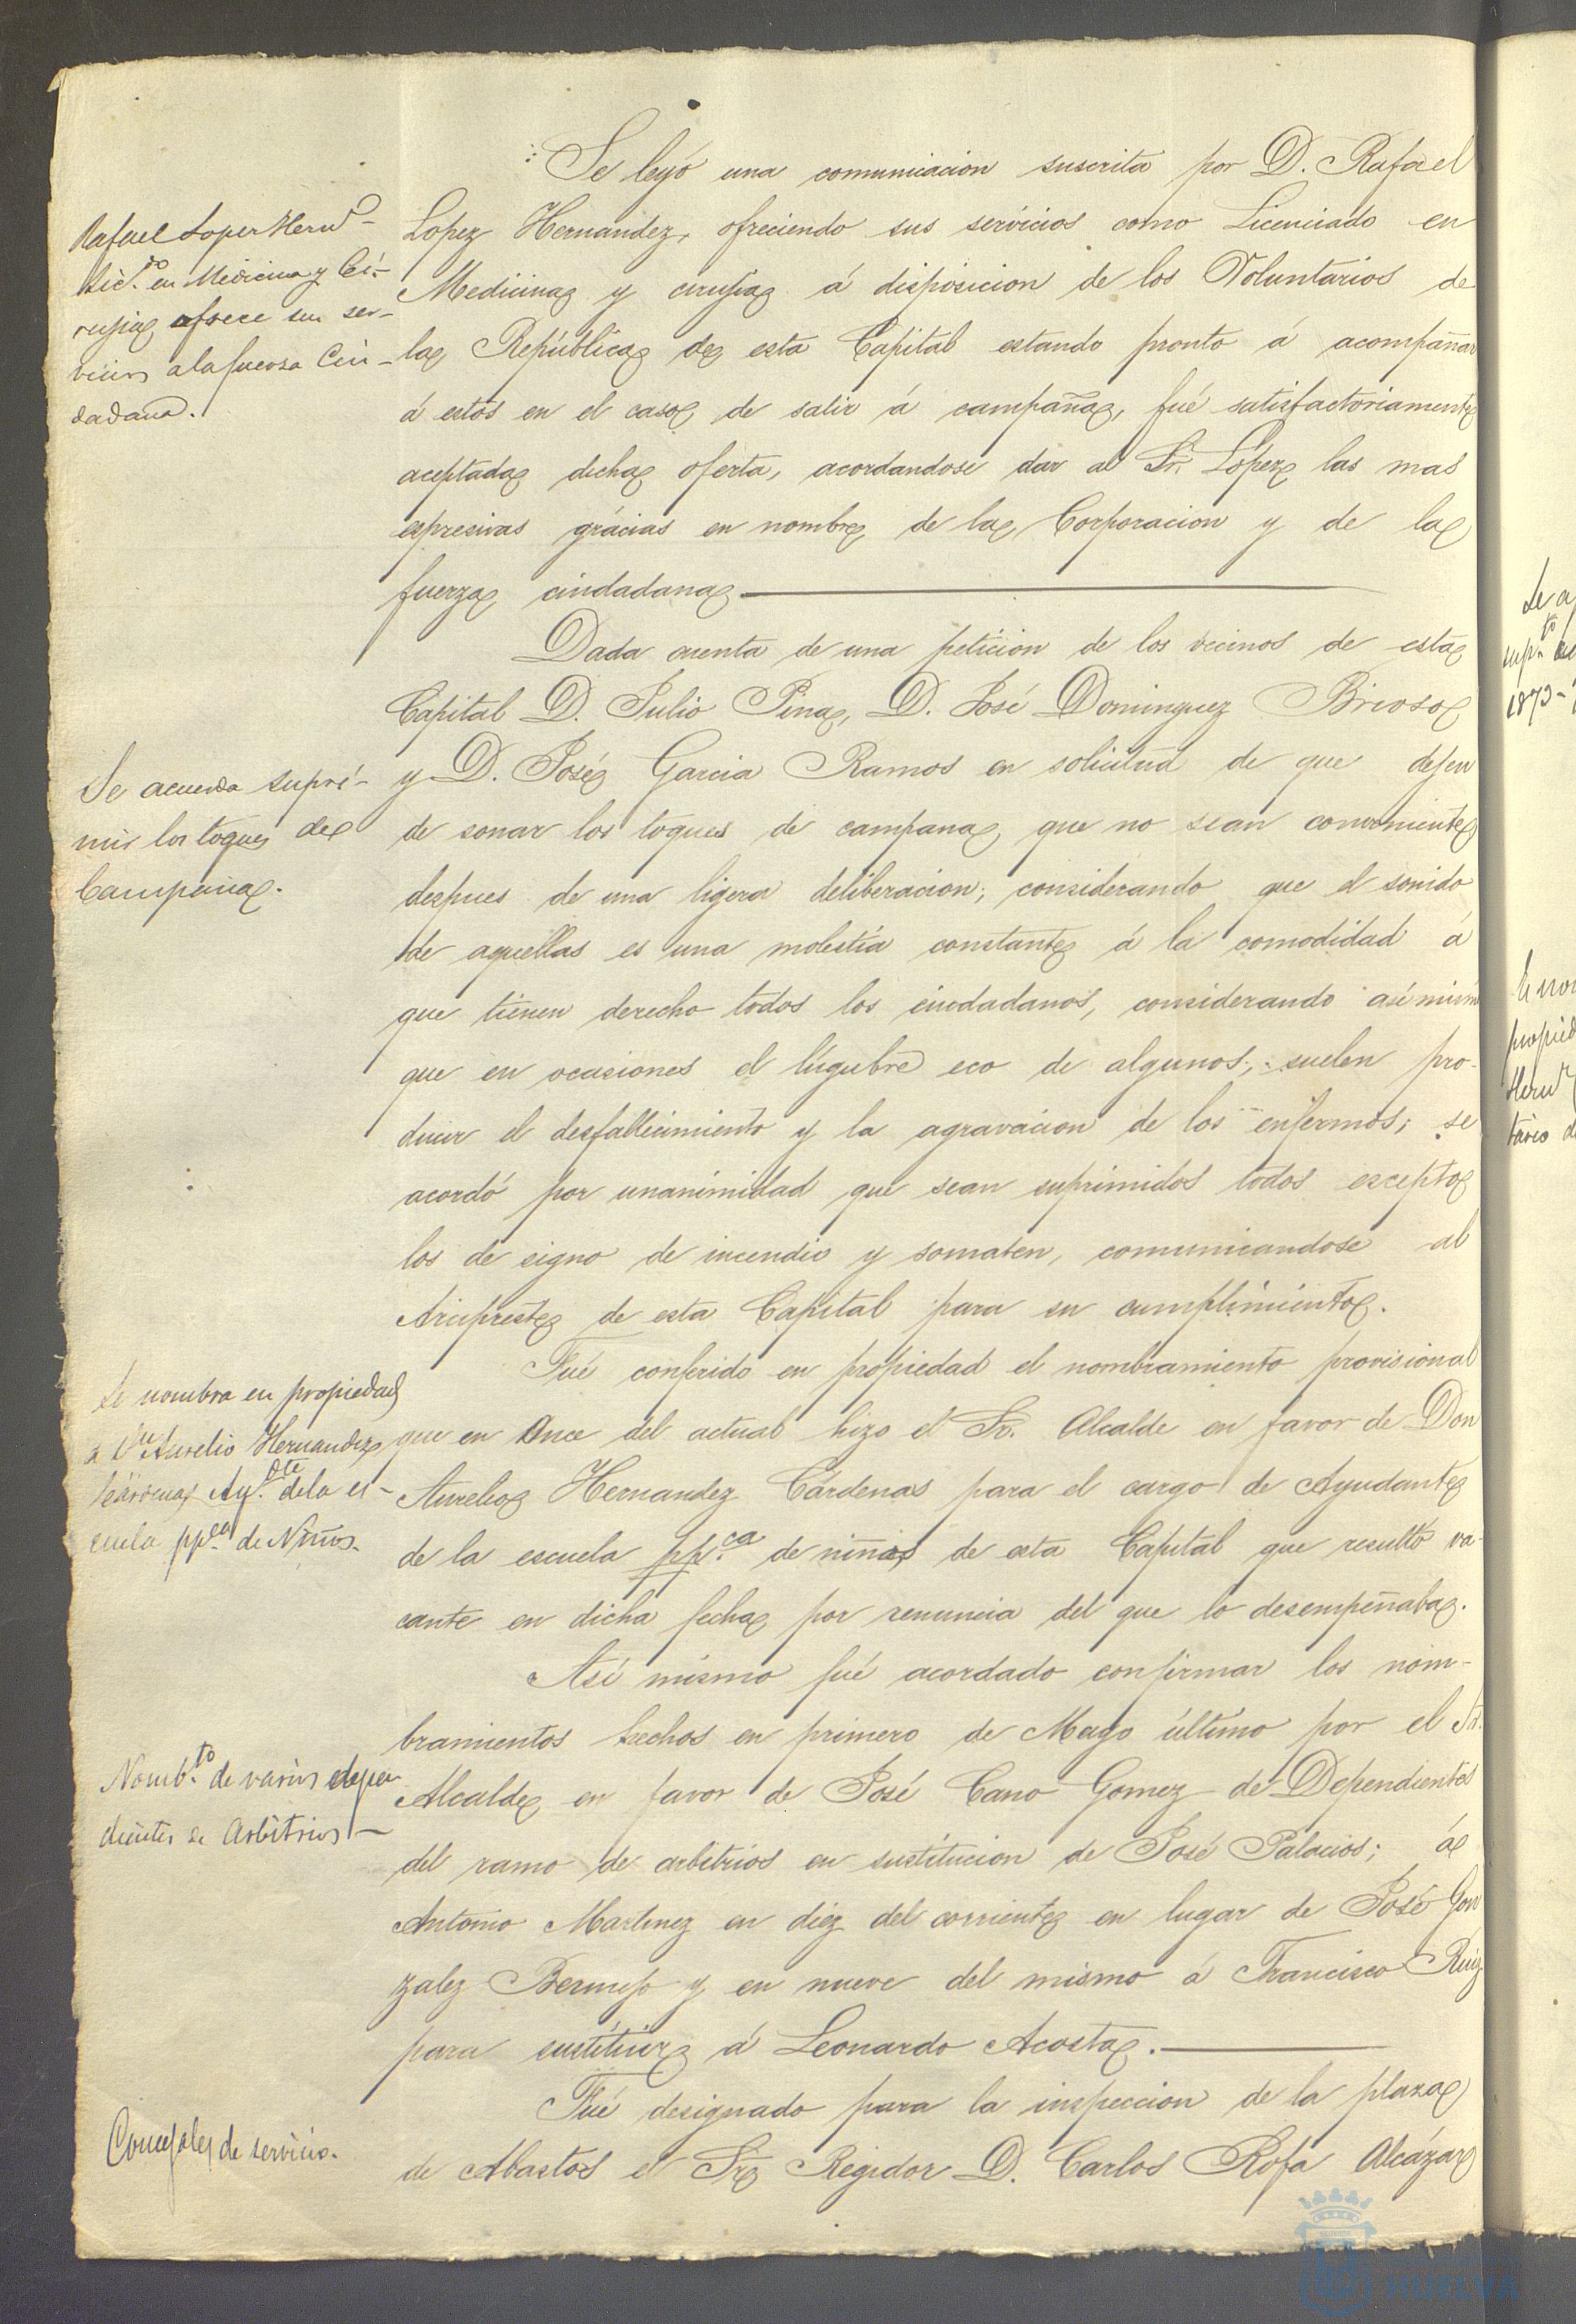 Se leyó una comunicacion suscrita por D. Rafael
Lopez Hernandez, ofreciendo sus servicios como Licenciado en
Medicina y cirujia á disposicion de los Voluntarios de
la República de esta Capital estando pronto á acompañar
á estos en el caso de salir á campaña, fué satisfactoriamente
aceptada dicha oferta, acordandose dar al Sr. López las mas
espresivas grácias en nombre de la Corporacion y de la
fuerza ciudadana
Rafael Lopez Hernz
Licdo en Medicina y Ci-
rujia ofrece sus ser-
vicios a la fuerza Ciu-
dadana.
Dada cuenta de una peticion de los vecinos de esta
Capital D. Julio Pina, D. José Dominguez Brioso
y D. José Garcia Ramos en solicitud de que dejen
de sonar los toques de campana, que no sean conveniente
despues de una ligera deliberacion; considerando que el sonido
de aquellas es una molestia constante á la comodidad á
que tienen derecho todos los ciudadanos, considerando asi mism
que en ocasiones el lúgubre eco de algunos, suelen pro-
ducir el desfallecimiento y la agravacion de los enfermos; se
acordó por unanimidad que sean suprimidos todos escepto
los de signo de incendio y somaten, comunicandose al
Arcipreste de esta Capital para su cumplimiento.
Se acuerda supri-
mir los toques de
Campana.
Fué conferido en propiedad el nombramiento provisional
que en Once del actual hizo el Sr. Alcalde en favor de Don
Aurelio Hernandez Cárdenas para el cargo de Ayudante
de la escuela ppca de niños de esta Capital que resultó va-
cante en dicha fecha por renuncia del que lo desempeñaba.
Se nombra en propiedad
a Dn Aurelio Hernandez
Cárdenas Aydte de la es-
cuela ppca de Niños.
Asi mismo fué acordado confirmar los nom-
bramientos hechos en primero de Mayo último por el Sr.
Alcalde en favor de José Cano Gomez de Dependientes
del ramo de arbitrios en sustitucion de José Palacios; á
Antonio Martinez en diez del corriente en lugar de José Gon
zalez Bermejo y en nueve del mismo á Francisco Ruiz
para sustituir á Leonardo Acosta.
Nombto de varios depen
dientes de Arbitrios
Fué designado para la inspeccion de la plaza
de Abastos el Sr Regidor D. Carlos Rofa Alcázar
Concejales de servicio.
Se a
supto
1873-
propied
Hernz
tario d
HUELVA